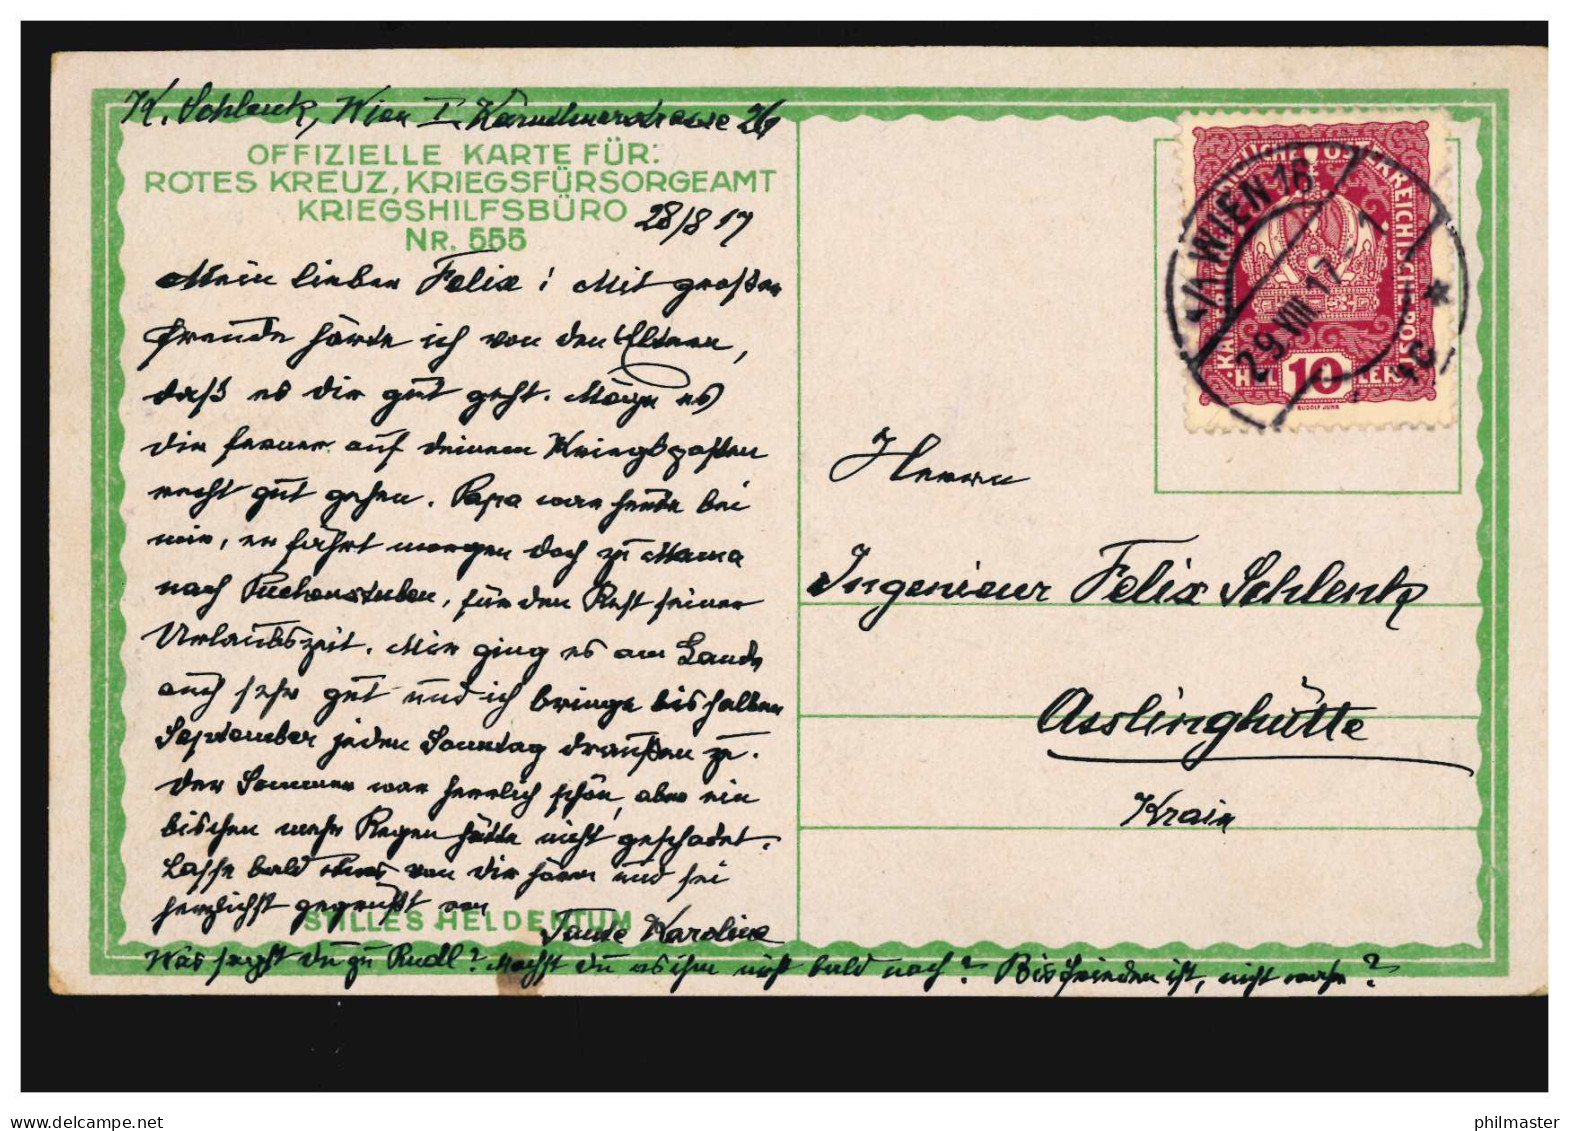 K. Schlenk, Wien I. Kärnthnerstrasse 26
OFFIZIELLE KARTE FÜR:
ROTES KREUZ, KRIEGSFÜRSORGEAMT
KRIEGSHILFSBÜRO
28/8 17
NR. 555
Mein lieber Felix! Mit großer
Freude hörte ich von den Eltern,
daß es dir gut geht. Möge es
dir ferner auf deinem Kriegsposten
recht gut gehen. Papa war heute bei
mir, er fährt morgen doch zu Mama
nach Puchenstuben, für den Rest seiner
Urlaubszeit. Mir ging es am Lande
auch sehr gut und ich bringe bis halben
September jeden Sonntag draußen zu.
Der Sommer war herrlich schön, aber ein
bischen mehr Regen hätte nicht geschadet.
Lasse bald etwas von dir hören und sei
herzlichst gegrüßt von
STILLES HELDENTUM
Tante Karoline
Was sagst du zu Rudl? Machst du es ihm nicht bald nach? Bis Frieden ist, nicht wahr?
KAISERLICHE KÖNIGLICHE ÖSTERREICHISCHE POST
HELLER
10
RUDOLF JUNK
1/1 WIEN 1
29.VIII.17
Herrn
Ingenieur Felix Schlenk
Asslinghütte
Krain
www.delcampe.net
philmaster